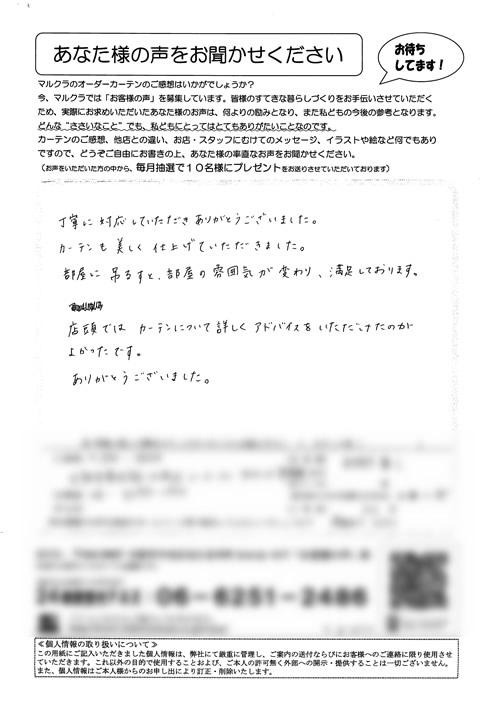 あなた様の声をお聞かせください
お待ち
してます！
マルクラのオーダーカーテンのご感想はいかがでしょうか？
今、マルクラでは「お客様の声」を募集しています。皆様のすてきな暮らしづくりをお手伝いさせていただく
ため、実際にお求めいただいたあなた様のお声は、何よりの励みとなり、また私どもの今後の参考となります。
どんな“ささいなこと”でも、私どもにとってはとてもありがたいことなのです。
カーテンのご感想、他店との違い、お店・スタッフにむけてのメッセージ、イラストや絵など何でもあり
ですので、どうぞご自由にお書きの上、あなた様の率直なお声をお聞かせください。
（お声をいただいた方の中から、毎月抽選で１０名様にプレゼントをお送りさせていただいております）
丁寧に対応していただきありがとうございました。
カーテンも美しく仕上げていただきました。
部屋に吊るすと、部屋の雰囲気が変わり、満足しております。
店頭ではカーテンについて詳しくアドバイスをいただけたのが
よかったです。
ありがとうございました。
06-6251-2486
≪個人情報の取り扱いについて≫
この用紙にご記入いただきました個人情報は、弊社にて厳重に管理し、ご案内の送付ならびにお客様へのご連絡に限り使用させ
ていただきます。これ以外の目的で使用することおよび、ご本人の許可無く外部への開示・提供することは一切ございません。
また、個人情報はご本人様からのお申し出により訂正・削除いたします。